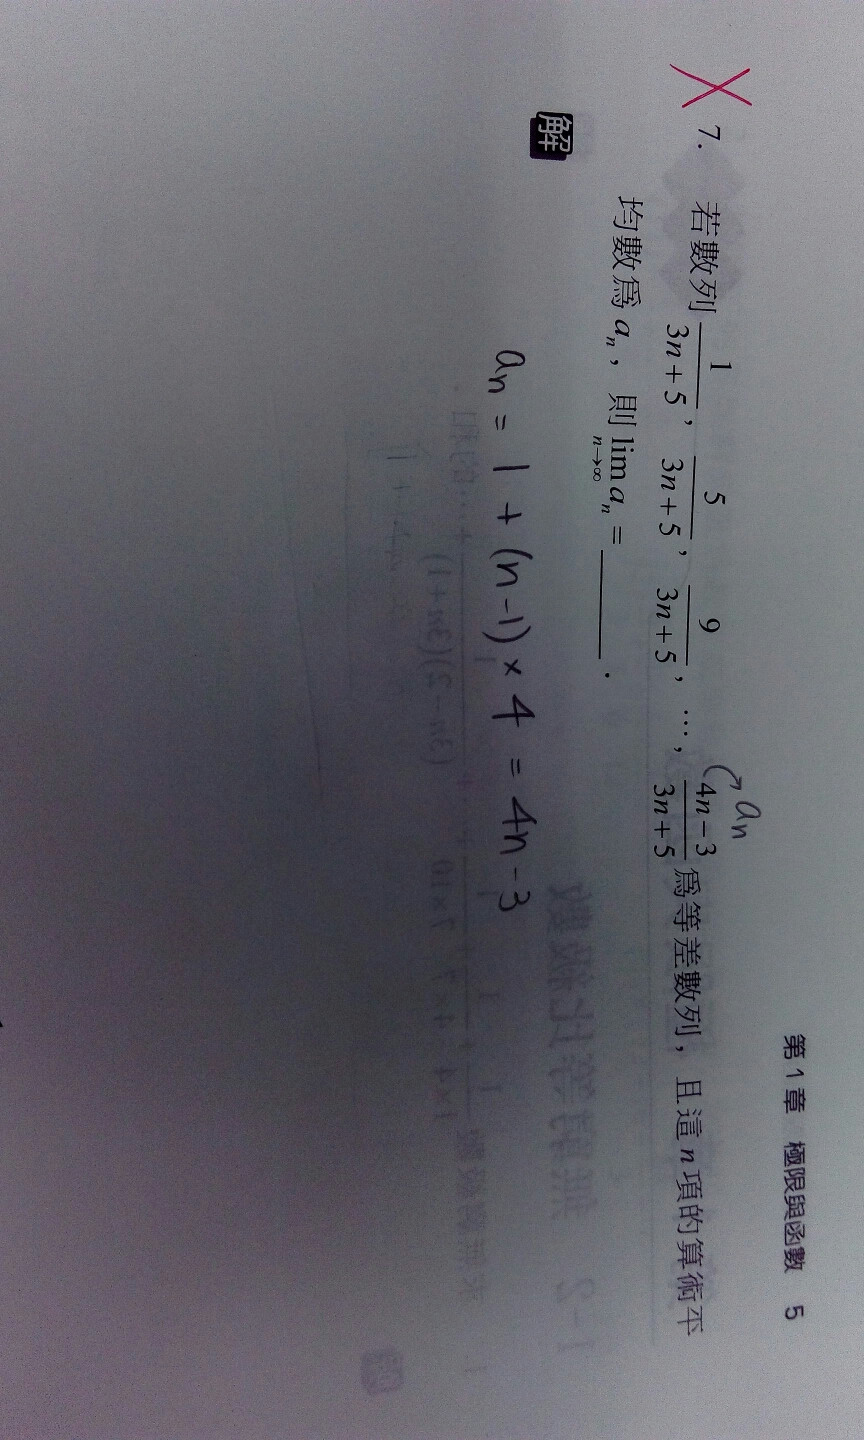 第1章 極限與函數 5
a_n
7. 若數列 1/(3n+5), 5/(3n+5), 9/(3n+5), …, (4n−3)/(3n+5) 爲等差數列，且這 n 項的算術平
均數爲 a_n，則 lim_{n→∞} a_n = ______ .
解
a_n = 1 + (n-1) × 4 = 4n-3